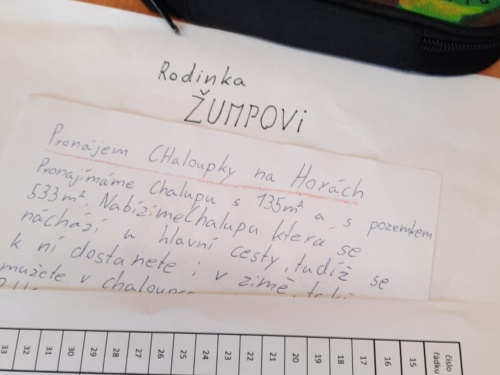 Rodinka
ŽUMPOVi
Pronájem CHaloupky na Horách
Pronajímáme chalupu s 135m² a s pozemkem
533m². Nabízíme chalupu která se
náchází u hlavní cesty, tudíž se
k ní dostanete i v zimě,
mužete v
33 32 31 30 29 28 27 26 25 24 23 22 21 20 19 18 17 16 15 číslo řádku